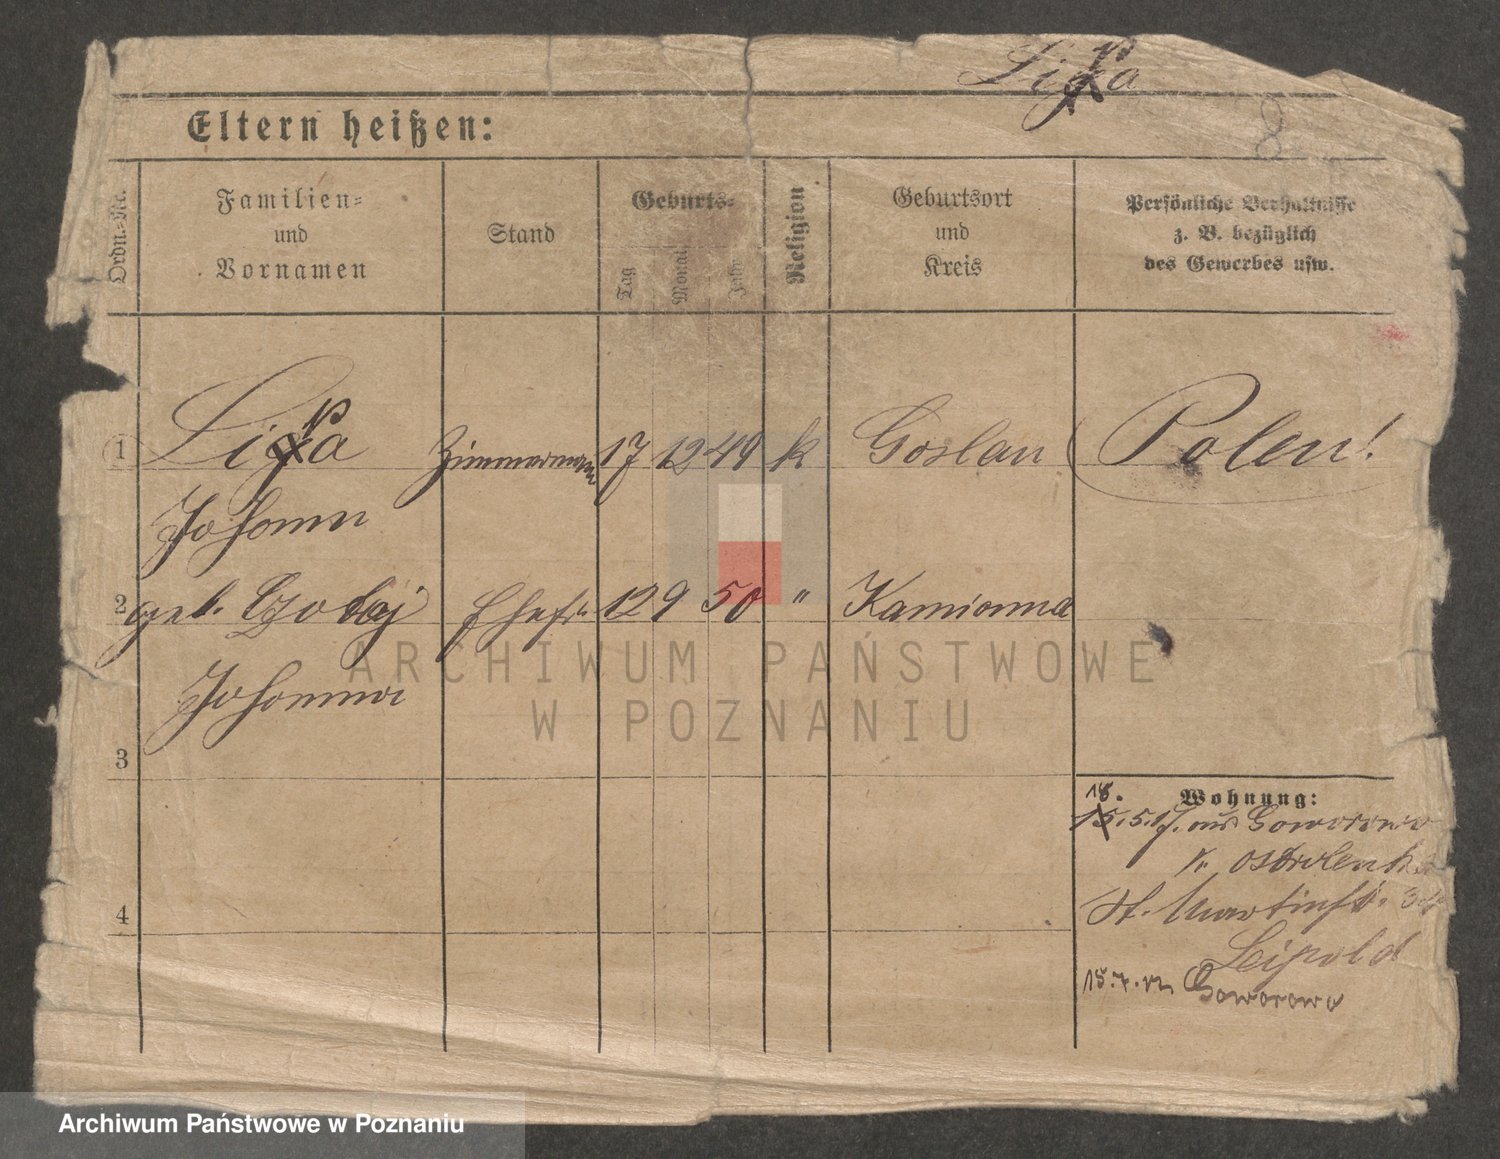 Eltern heißen:
8
Ordn.-Nr.
Familien-
und
Vornamen
Stand
Geburts-
Tag
Monat
Jahr
Religion
Geburtsort
und
Kreis
Persönliche Verhältnisse
z. B. bezüglich
des Gewerbes usw.
1 Zimmermann 17 12 49 k Goslau Polen!
Johann
2 geb. Ehefr. 12 9 50 " Kamionna
Johanna
3
4
Wohnung:
18.
15.5.17. aus Goworowo
Ostrolenka
St. Martinstr. 34
Leipold
15.7. Goworowo
ARCHIWUM PAŃSTWOWE
W POZNANIU
Archiwum Państwowe w Poznaniu